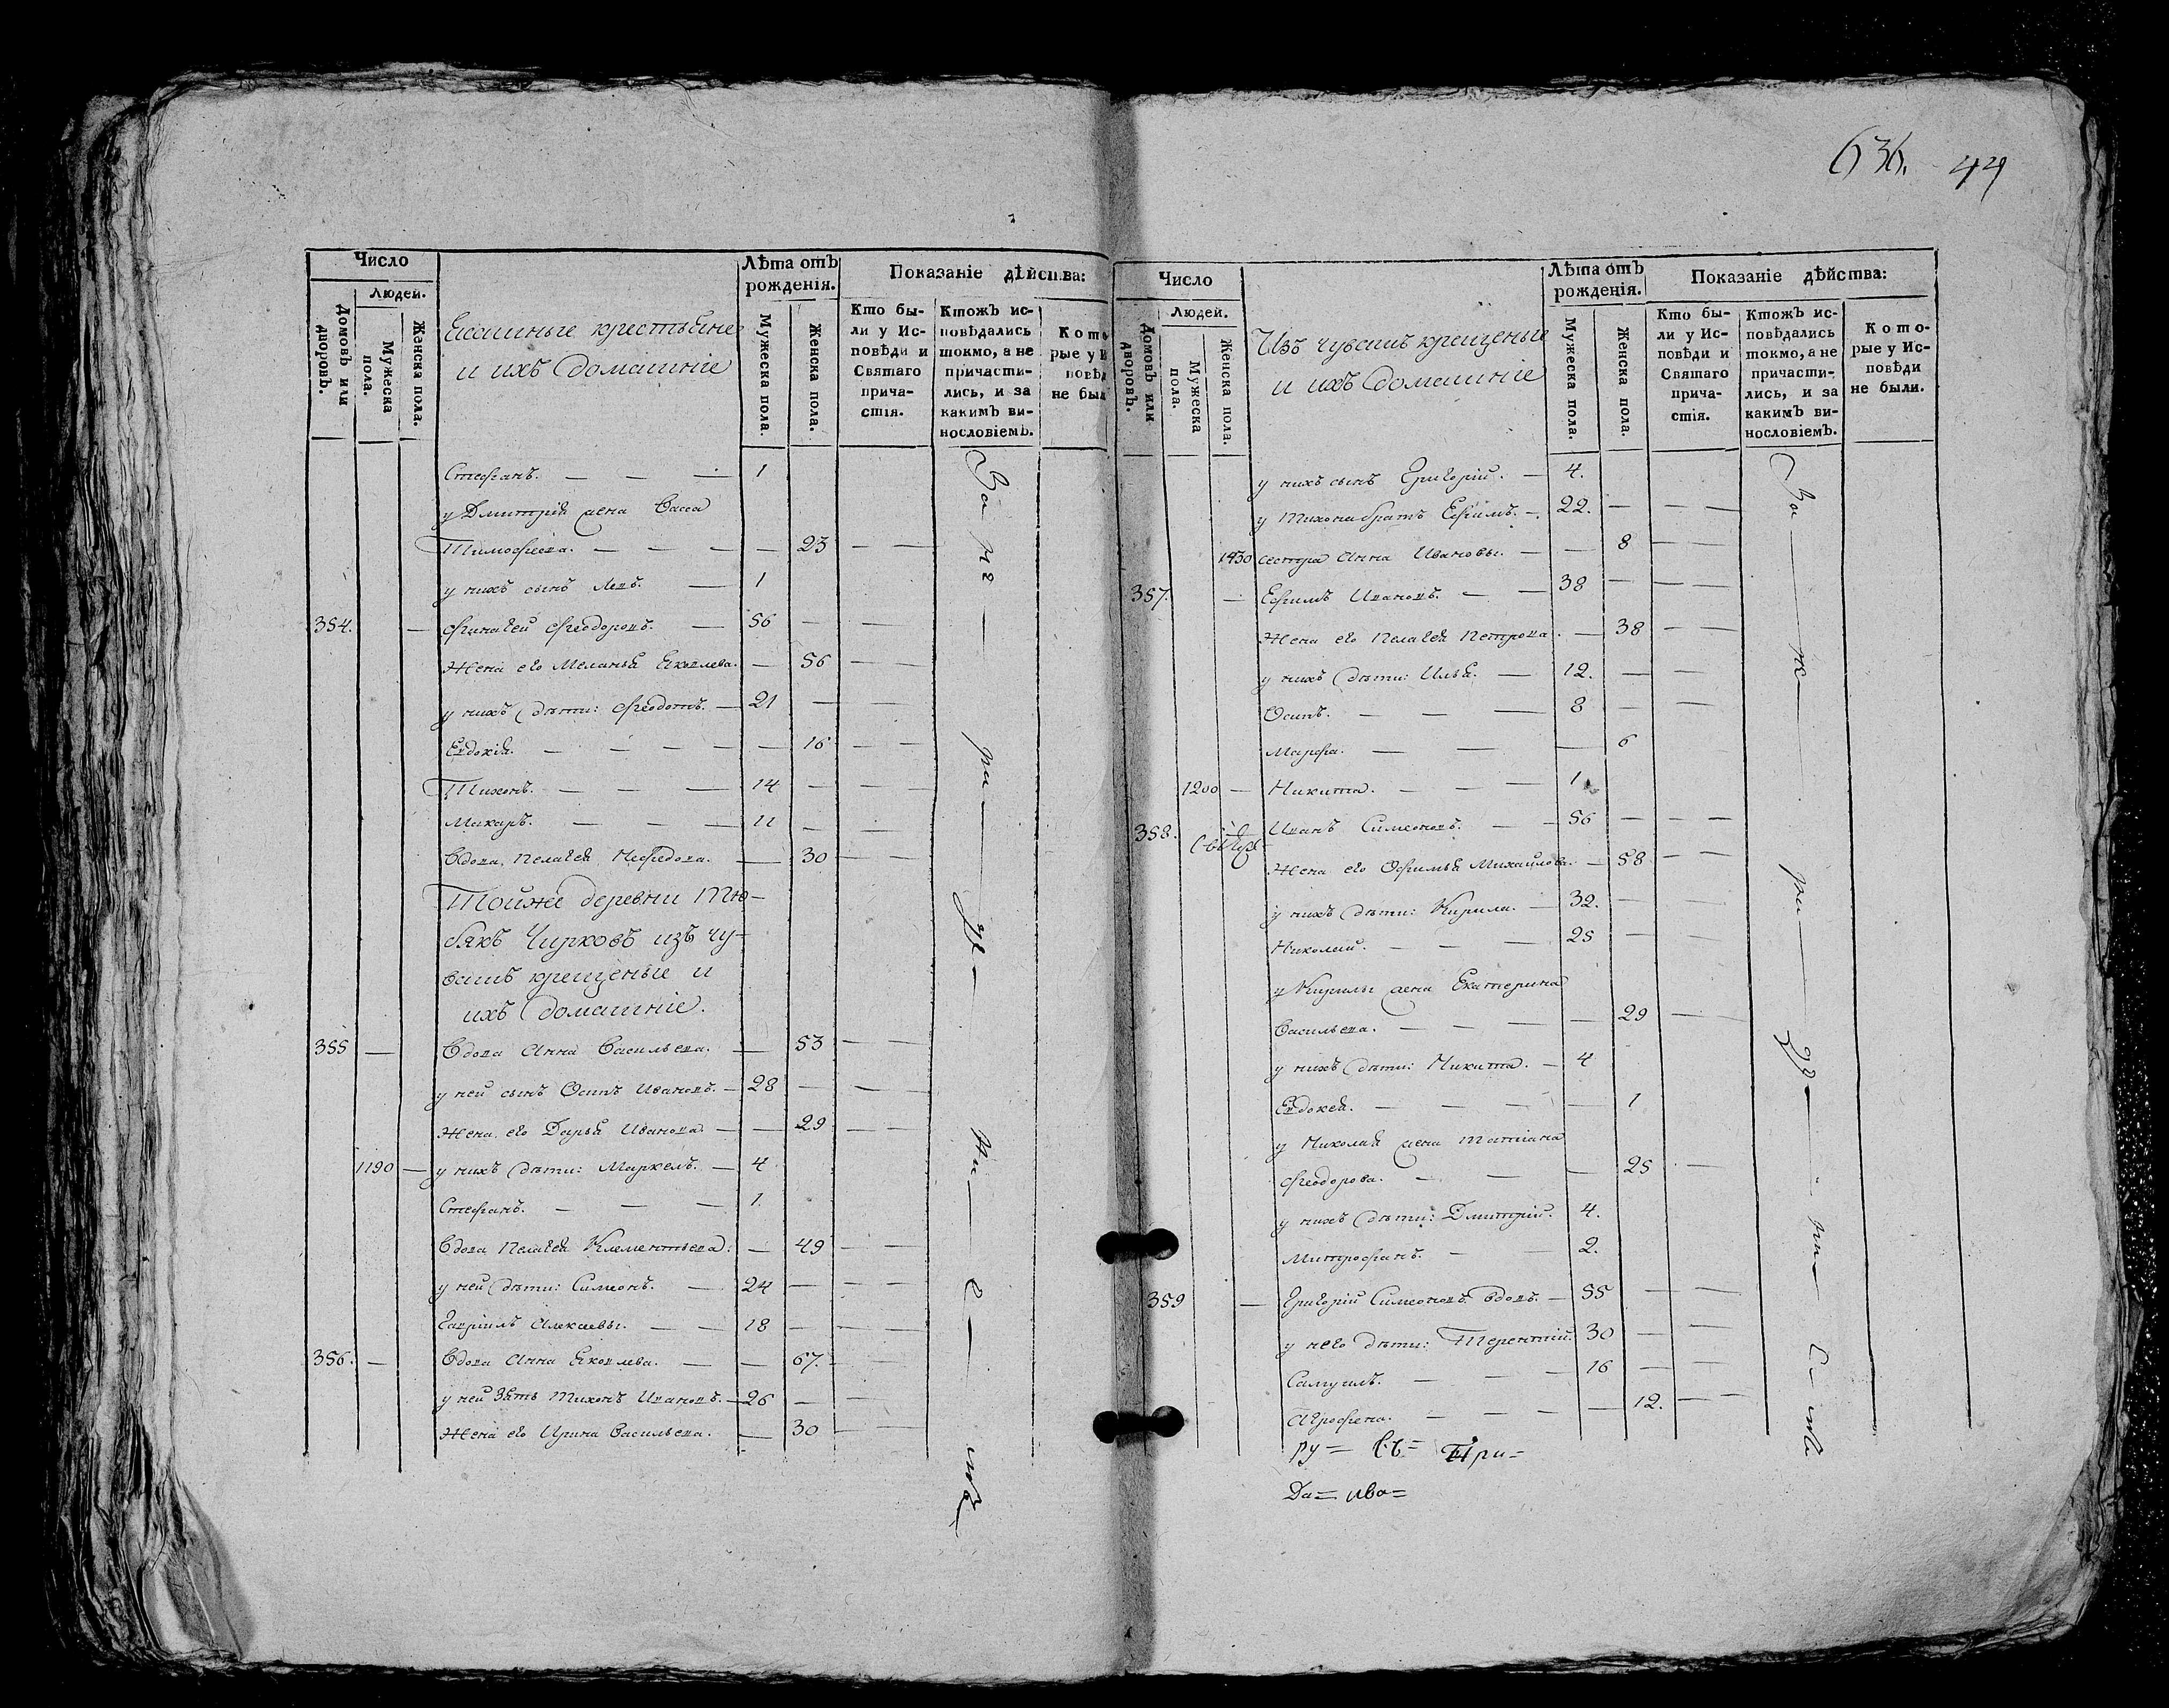 636. 44
Число
Людей.
Домовъ или дворовъ.
Мужеска пола.
Женска пола.
крестьяне
и ихъ домашніе
Лѣта отъ рожденія.
Мужеска пола.
Женска пола.
Показаніе дѣйства:
Кто бы-
ли у Ис-
повѣди и
Святаго
прича-
стія.
Ктожъ ис-
повѣдались
токмо, а не
причасти-
лись, и за
какимъ ви-
нословіемъ.
Кото
рые у И
повѣд
не был
Стефанъ. — — — 1
у Дмитрія жена Васса
Тимофеева. — — — — 23 — —
у нихъ сынъ Левъ. — 1
354. — Финагей Феодоровъ. — 56 — —
Жена его Меланья Яковлева. — 56 — —
у нихъ дѣти: Феодотъ. — 21 — —
Евдокія. — — — — — 16 — —
Тихонъ. — — — 14 — — —
Макаръ. — — — 11 — — —
Вдова Пелагея Нефедова. — 30 — —
Тойже деревни Тю-
бякъ Чирковъ изъ чу-
вашъ крещеные и
ихъ домашніе.
355 — Вдова Анна Васильева. — 53 — —
у ней сынъ Осипъ Ивановъ. — 28 — — —
Жена его Дарья Иванова. — — 29 — —
1190 — у нихъ дѣти: Маркелъ. — 4
Стефанъ. — — — 1.
Вдова Пелагея Клементьева: — 49 — —
у ней дѣти: Симеонъ. — 24 — — —
Гавріилъ Алексеевы. — — 18 — — —
356. — Вдова Анна Яковлева. — — 67. — —
у ней зять Тихонъ Ивановъ. — 26 — — —
Жена его Ирина Васильева. — 30 — —
Число
Людей.
Домовъ или дворовъ.
Мужеска пола.
Женска пола.
Изъ чувашъ крещеные
и ихъ домашніе
Лѣта отъ рожденія.
Мужеска пола.
Женска пола.
Показаніе дѣйства:
Кто бы-
ли у Ис-
повѣди и
Святаго
прича-
стія.
Ктожъ ис-
повѣдались
токмо, а не
причасти-
лись, и за
какимъ ви-
нословіемъ.
Кото-
рые у Ис-
повѣди
не были.
у нихъ сынъ Григорій. — 4.
у Тихона братъ Ефимъ. — 22. — — —
1430 сестра Анна Ивановы. — — 8 — —
357. — Ефимъ Ивановъ. — — 38 — — —
Жена его Пелагея Петрова. — 38 — —
у нихъ дѣти: Илья. — 12. — — —
Осипъ. — — — 8 — — —
Марфа. — — — 6
1200 — Никита. — — — 1
358. Иванъ Симеоновъ. — — 56 — — —
Жена его Офимья Михайлова. — 58 — —
у нихъ дѣти: Кирила. — 32. — — —
Николай. — — — 25 — — —
у Кирилы жена Екатерина
Васильева. — — — — 29 — —
у нихъ дѣти: Никита. — 4
Евдокея. — — — — — 1
у Николая жена Татіана
Феодорова. — — — 25 — —
у нихъ дѣти: Дмитрій. 4.
Митрофанъ. — — 2.
359 — Григорій Симеоновъ вдовъ. — 55 — —
у него дѣти: Терентій. 30 — —
Самуилъ. — — — 16 — —
Агрофена. — — — — 12. — —
ру= При=